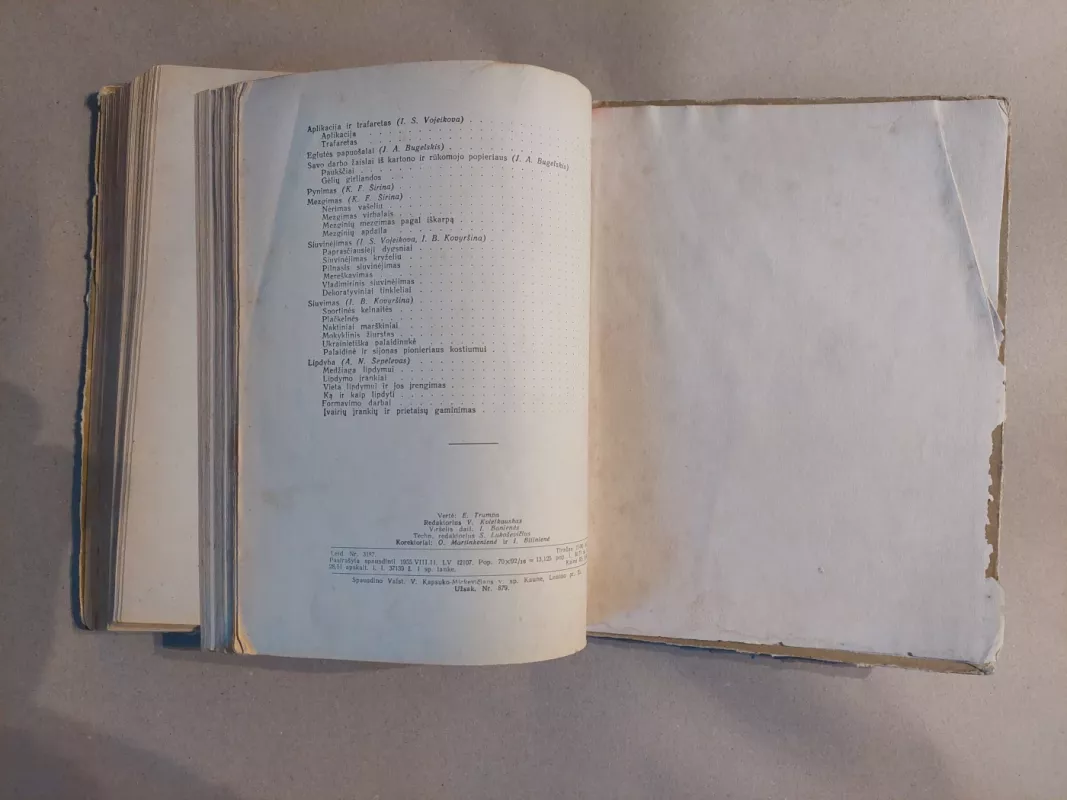 Aplikacija ir trafaretas (I. S. Vojeikova)
Aplikacija
Trafaretas
Eglutės papuošalai (J. A. Bugelskis)
Savo darbo žaislai iš kartono ir rūkomojo popieriaus (J. A. Bugelskis)
Paukščiai
Gėlių girliandos
Pynimas (K. F. Širina)
Mezgimas (K. F. Širina)
Nėrimas vašeliu
Mezgimas virbalais
Mezginių mezgimas pagal iškarpą
Mezginių apdaila
Siuvinėjimas (I. S. Vojeikova, I. B. Kovyršina)
Paprasčiausieji dygsniai
Siuvinėjimas kryželiu
Pilnasis siuvinėjimas
Mereškavimas
Vladimirinis siuvinėjimas
Dekoratyviniai tinkleliai
Siuvimas (I. B. Kovyršina)
Sportinės kelnaitės
Plačkelnės
Naktiniai marškiniai
Mokyklinis žiurstas
Ukrainietiška palaidinukė
Palaidinė ir sijonas pionieriaus kostiumui
Lipdyba (A. N. Šepelevas)
Medžiaga lipdymui
Lipdymo įrankiai
Vieta lipdymui ir jos įrengimas
Ką ir kaip lipdyti
Formavimo darbai
Įvairių įrankių ir prietaisų gaminimas
Vertė: E. Trumba
Redaktorius V.
Viršelis dail. I.
Techn. redaktorius S. Lukoševičius
Korektoriai: O. Martinkėnienė ir I.
Leid. Nr.
Pasirašyta spausdinti 1955.VIII.11. LV Pop. 70x92/16 =
apskait. l. l. 37139 š. 1 sp. lanke.
Spausdino Valst. V. Kapsuko-Mickevičiaus v. sp. Kaune, Lenino pr.
Užsak. Nr. 879.